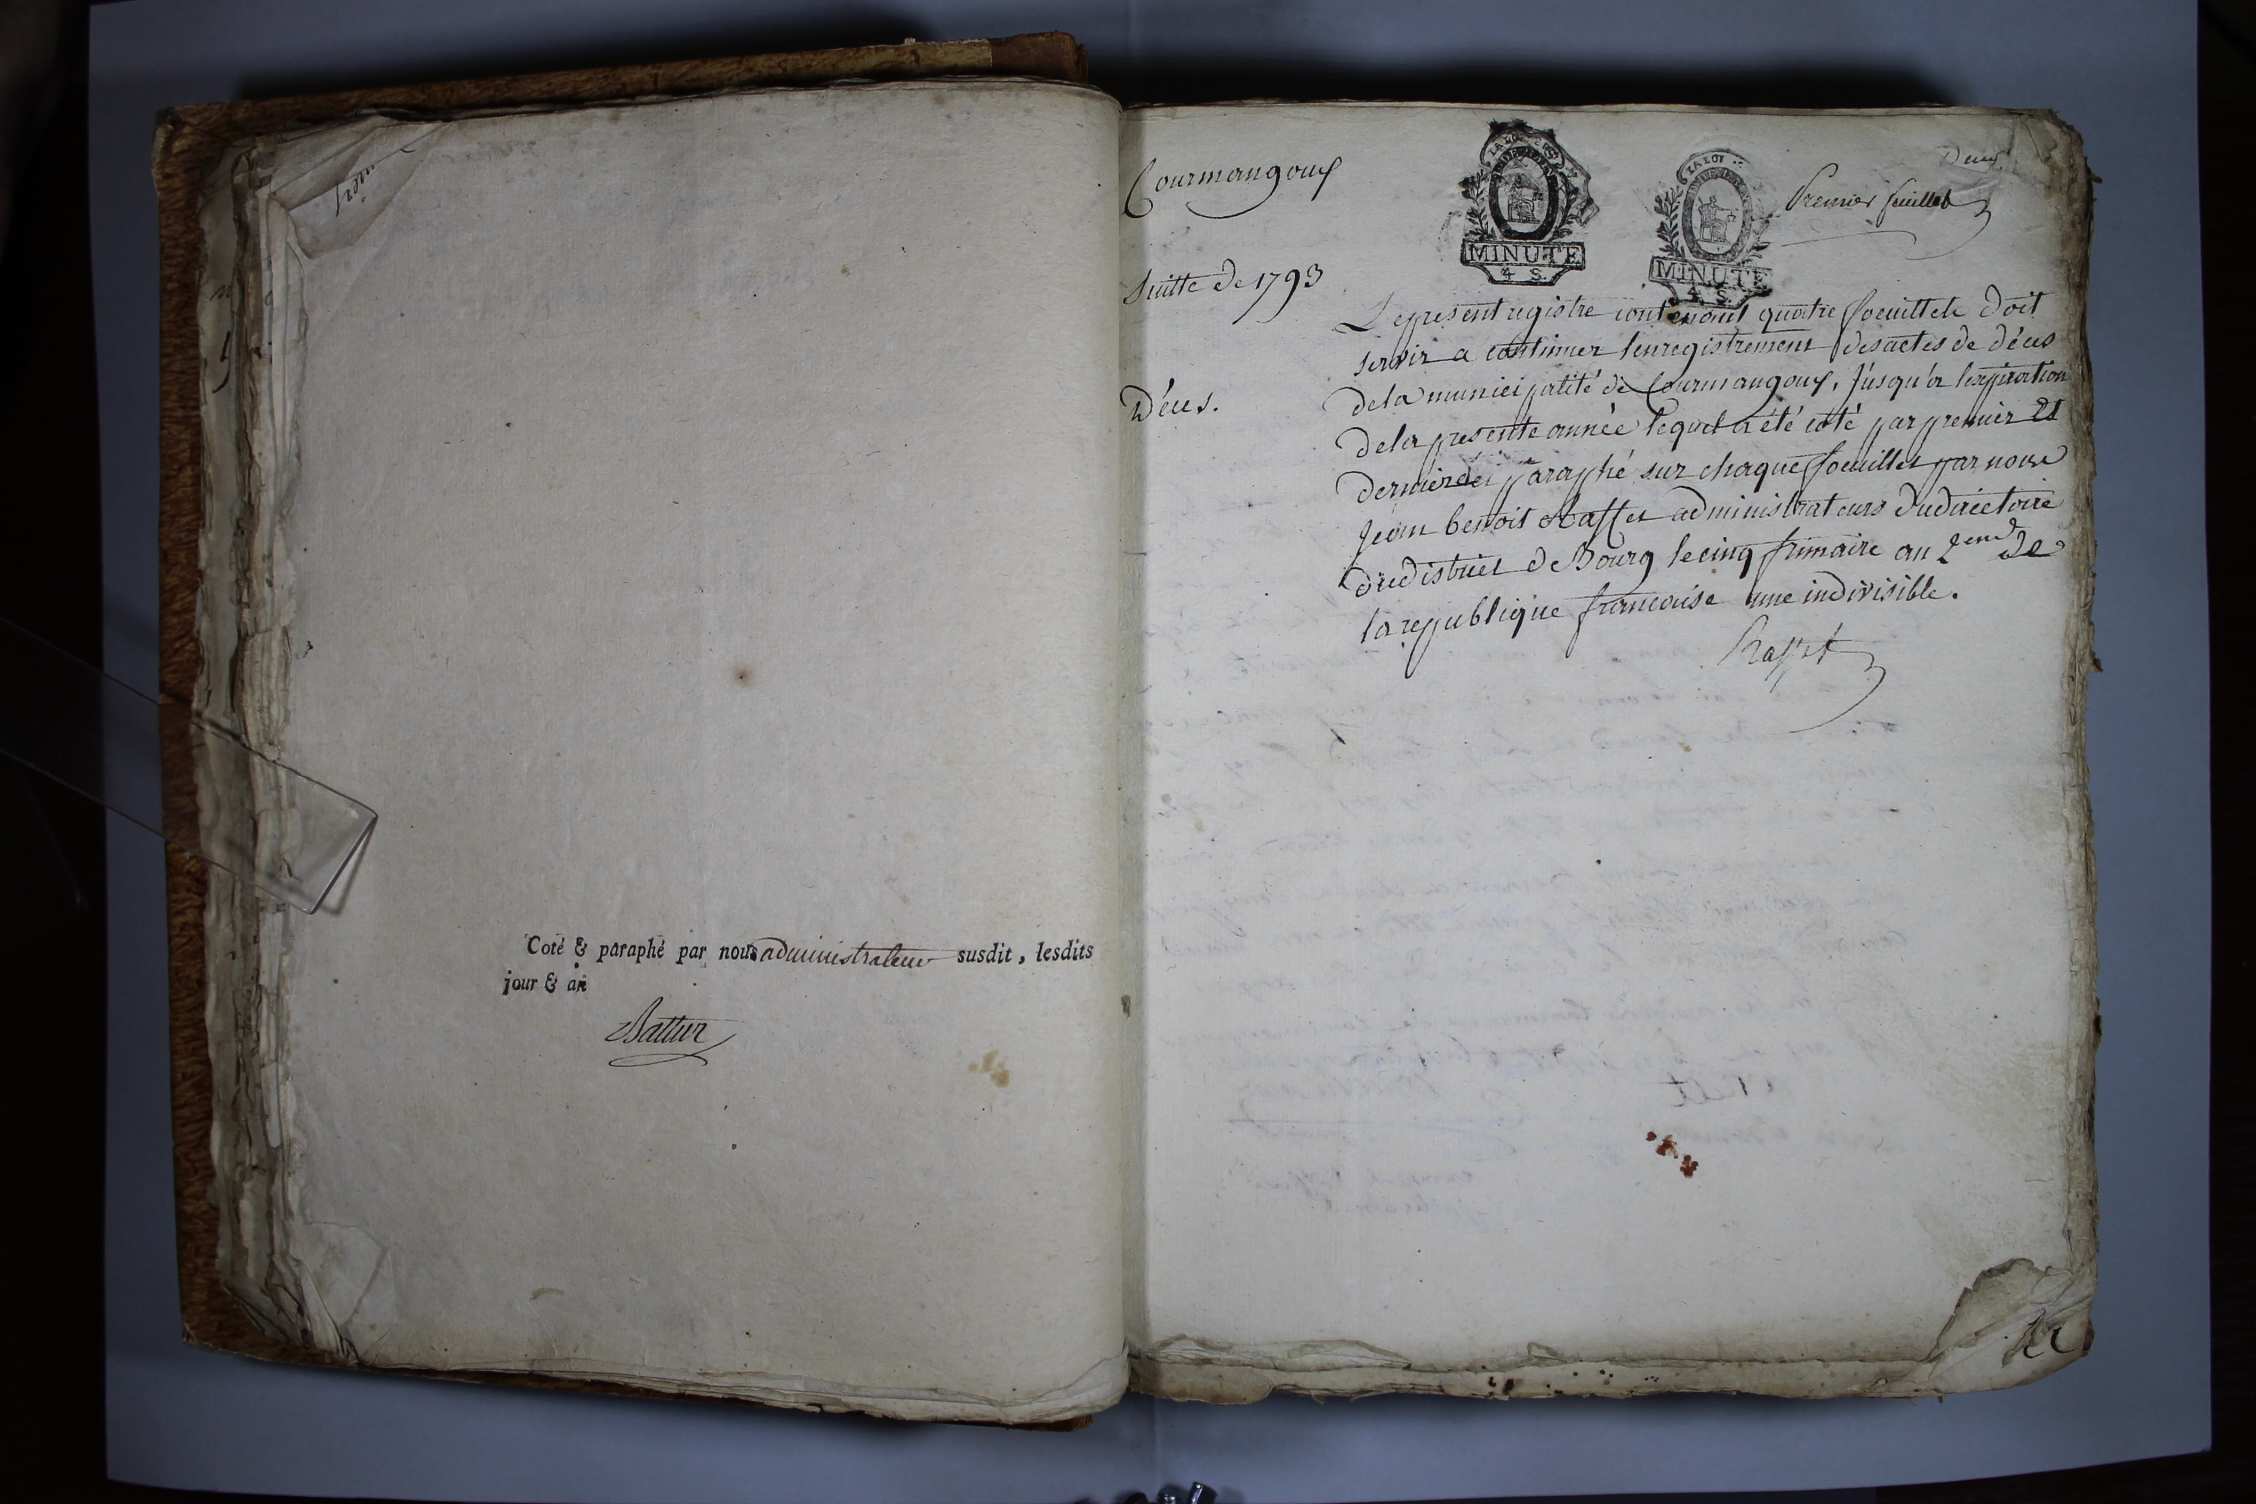 Coté & paraphé par nous administrateur susdit, lesdits
jour & an
Battur
Courmangoux
Suitte de 1793
Décés.
LA LOI
MINUTE
4 S.
LA LOI
MINUTE
4 S.
Deux
Premier feuillet
Le present registre contenant quatre foeuillets doit
servir a continuer l'enregistrement des actes de décés
de la municipalité de Courmangoux, jusqu'a l'expiration
de la presente année lequel a été coté par premier et
dernier et paraphé sur chaque foeuillet par nous
Jean benoit Raffet administrateurs du directoire
du district de Bourg le cinq frimaire an 2eme de
la republique francoise une indivisible.
Raffet